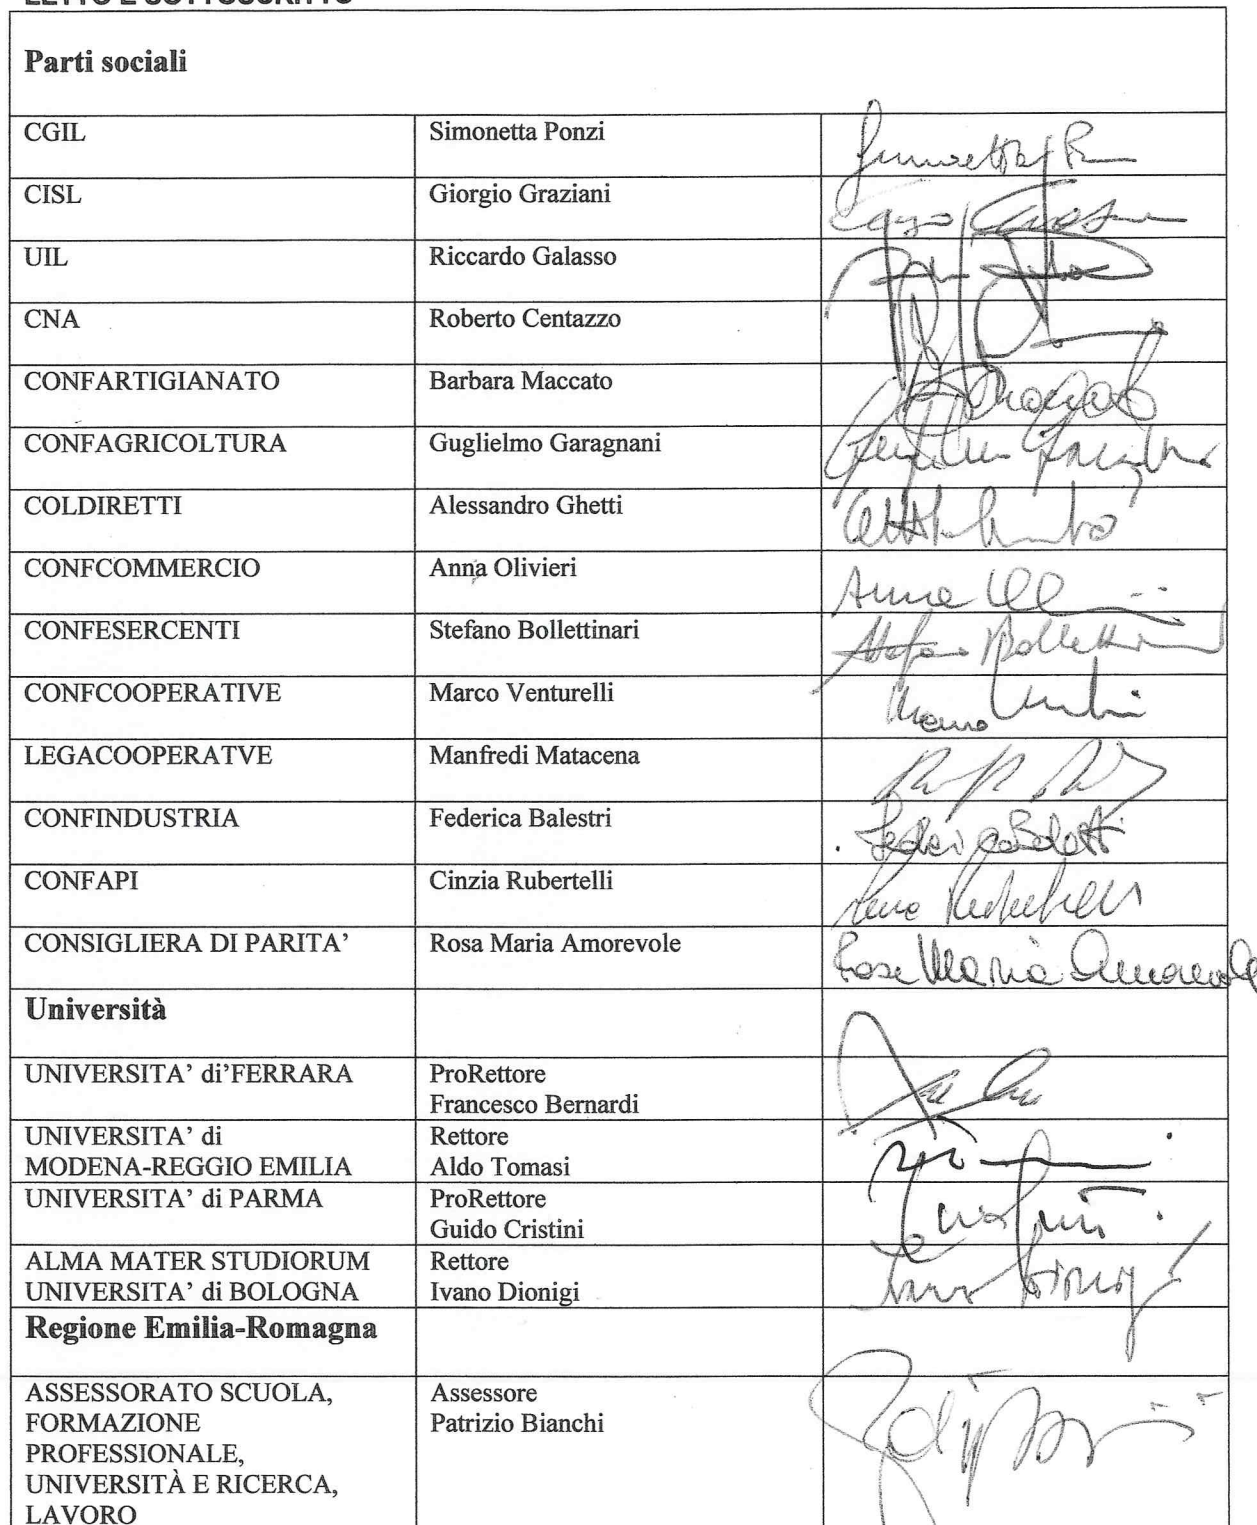 LETTO E SOTTOSCRITTO
Parti sociali
CGIL Simonetta Ponzi
CISL Giorgio Graziani
UIL Riccardo Galasso
CNA Roberto Centazzo
CONFARTIGIANATO Barbara Maccato
CONFAGRICOLTURA Guglielmo Garagnani
COLDIRETTI Alessandro Ghetti
CONFCOMMERCIO Anna Olivieri
CONFESERCENTI Stefano Bollettinari
CONFCOOPERATIVE Marco Venturelli
LEGACOOPERATVE Manfredi Matacena
CONFINDUSTRIA Federica Balestri
CONFAPI Cinzia Rubertelli
CONSIGLIERA DI PARITA’ Rosa Maria Amorevole Rosa Maria Amorevole
Università
UNIVERSITA’ di’FERRARA ProRettore
Francesco Bernardi
UNIVERSITA’ di Rettore
MODENA-REGGIO EMILIA Aldo Tomasi
UNIVERSITA’ di PARMA ProRettore
Guido Cristini
ALMA MATER STUDIORUM Rettore
UNIVERSITA’ di BOLOGNA Ivano Dionigi
Regione Emilia-Romagna
ASSESSORATO SCUOLA, Assessore
FORMAZIONE Patrizio Bianchi
PROFESSIONALE,
UNIVERSITÀ E RICERCA,
LAVORO